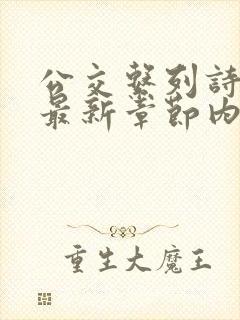 公交系列詩
最新章節內
重生大魔王